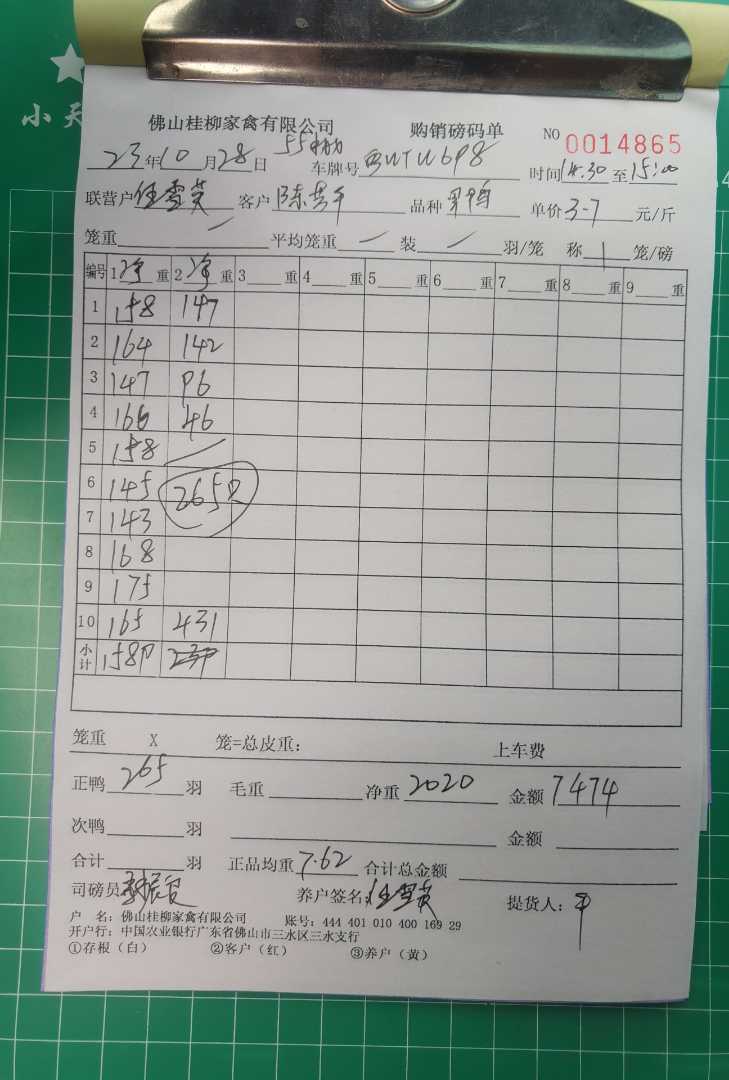 小天
佛山桂柳家禽有限公司 购销磅码单 NO 0014865
23年10月28日 车牌号 时间14:30至15:00
联营户任雪英 客户陈 品种 单价3-7元/斤
笼重 平均笼重 装 羽/笼 称1笼/磅
编号 1净重 2净重 3重 4重 5重 6重 7重 8重 9重
1 158 147
2 164 142
3 147 96
4 166 46
5 158
6 145 265只
7 143
8 168
9 175
10 165 431
小计 1589
笼重 X 笼=总皮重: 上车费
正鸭265羽 毛重 净重2020 金额7474
次鸭 羽 金额
合计 羽 正品均重7.62 合计总金额
司磅员 养户签名:任雪英 提货人:平
户 名: 佛山桂柳家禽有限公司 账号: 444 401 010 400 169 29
开户行: 中国农业银行广东省佛山市三水区三水支行
①存根（白） ②客户（红） ③养户（黄）